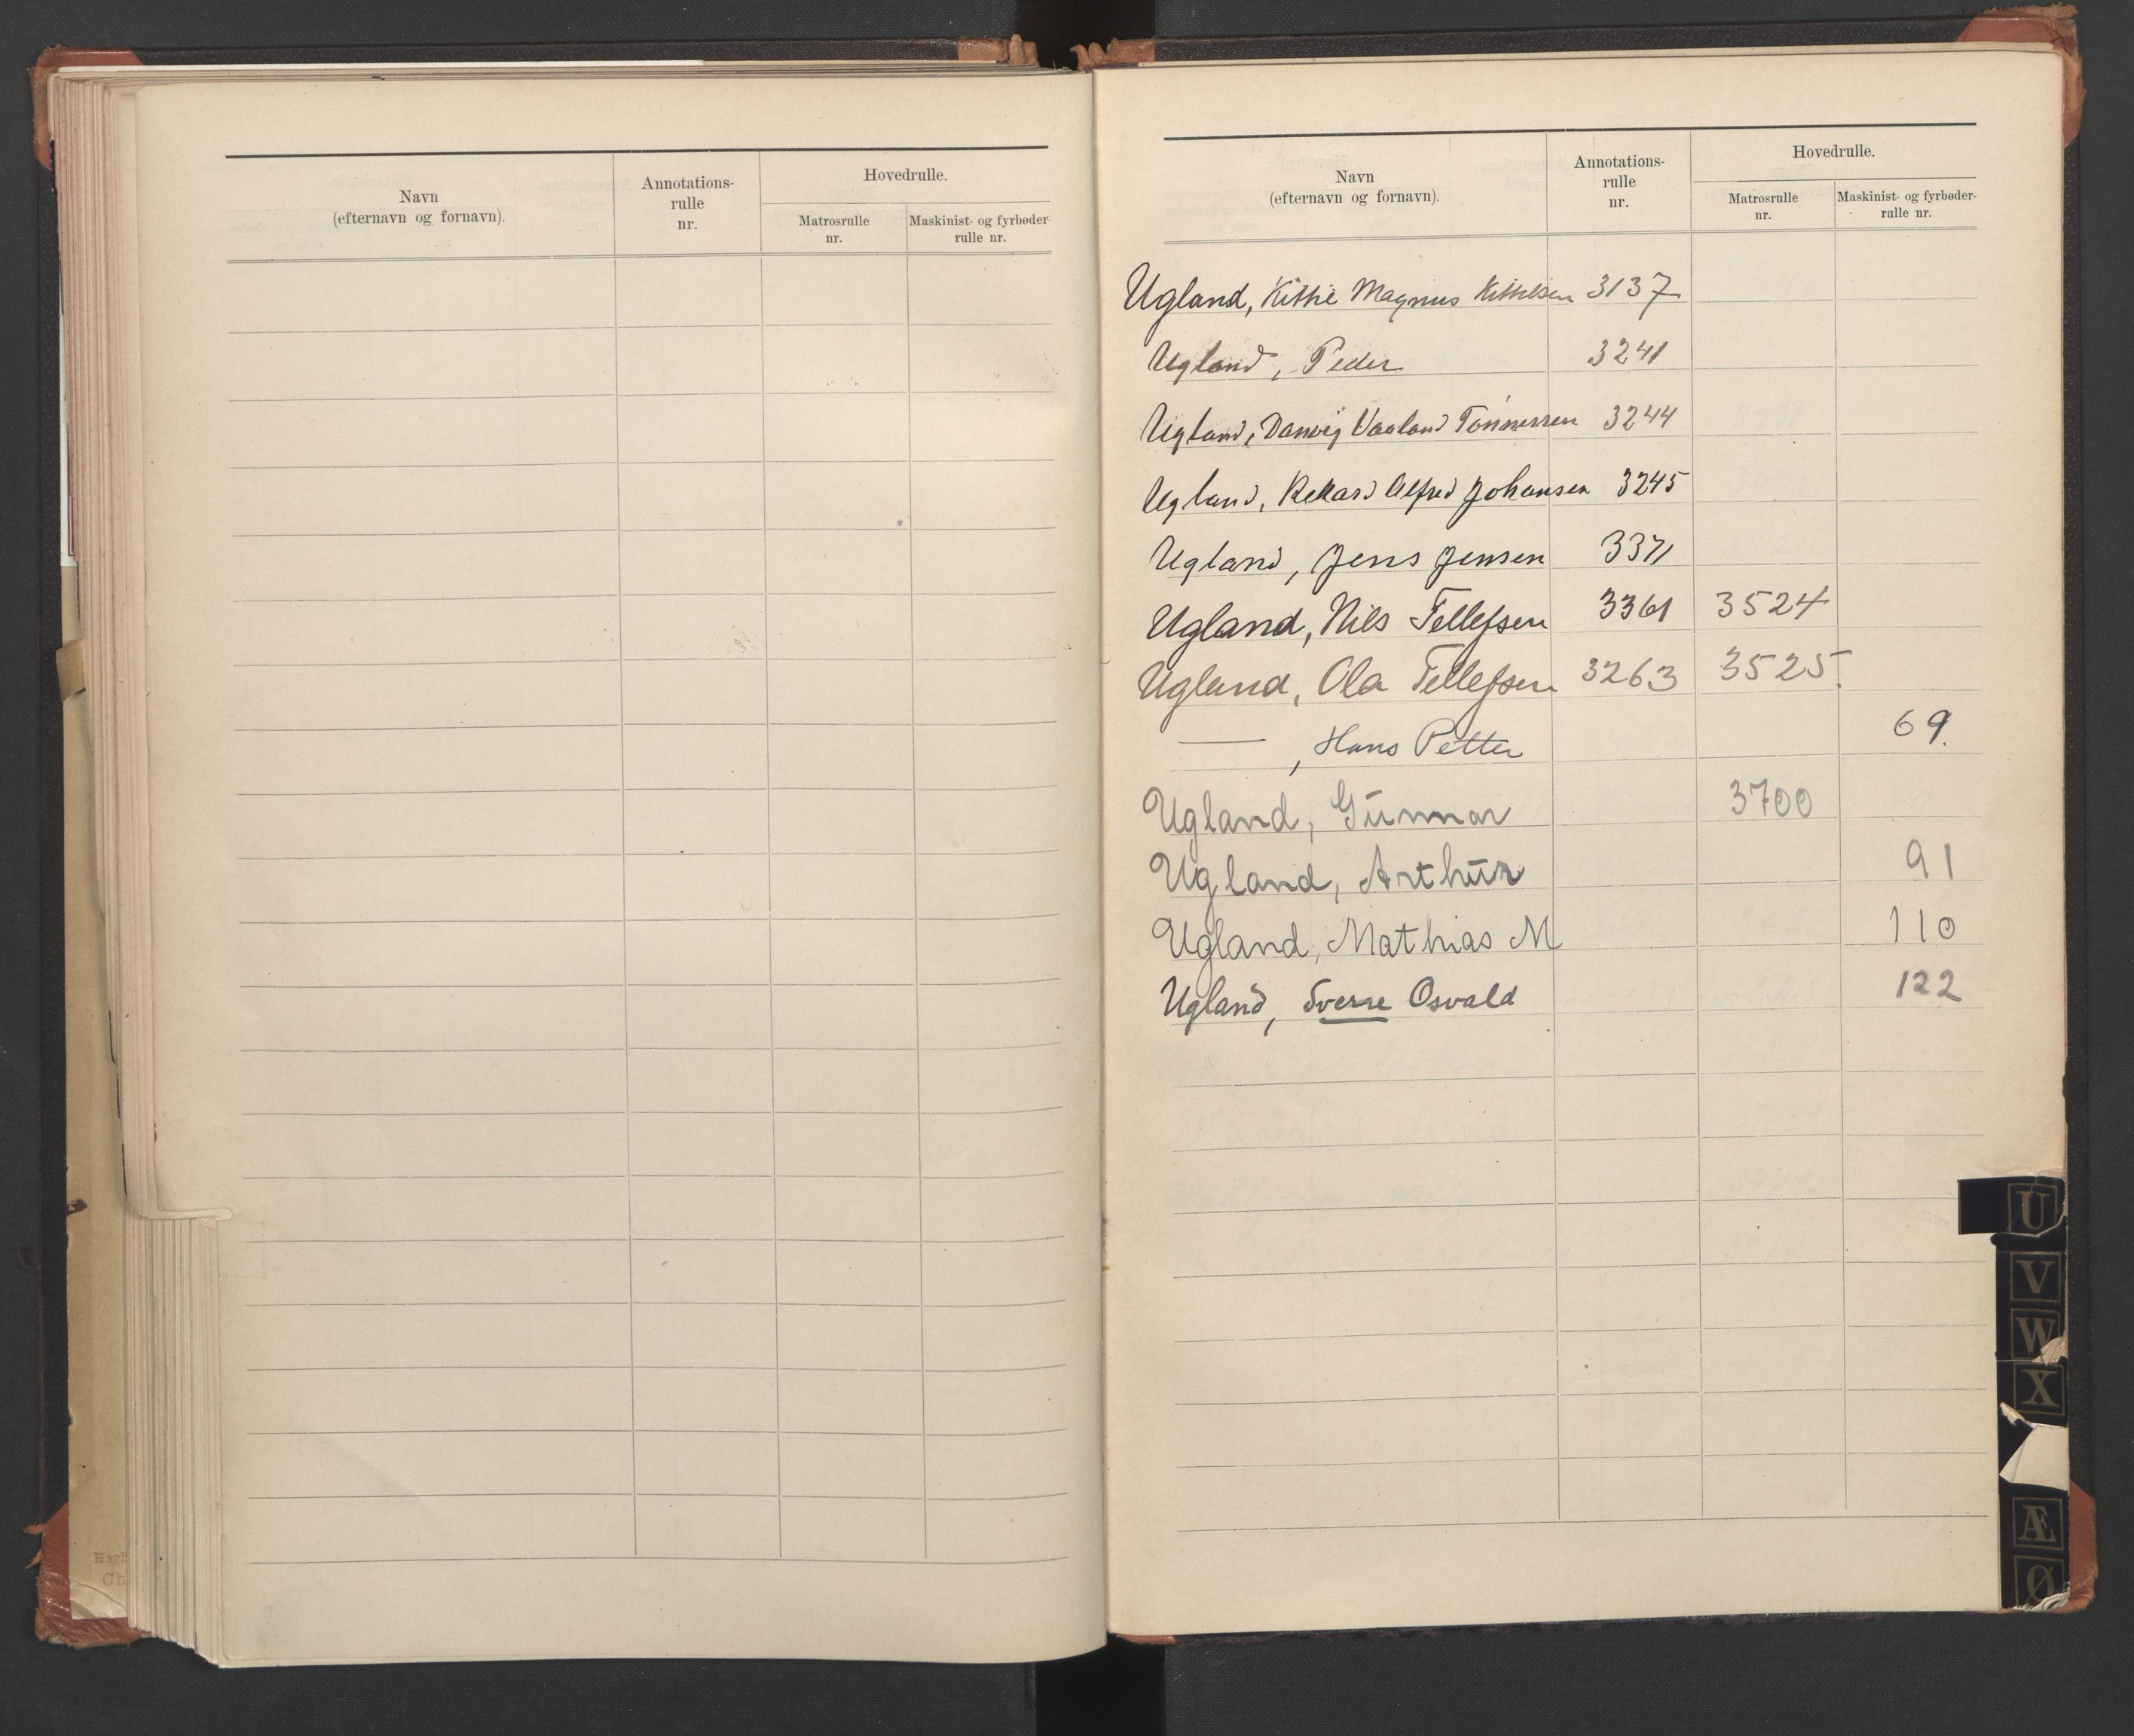 Navn
(efternavn og fornavn).
Annotations-
rulle
nr.
Hovedrulle.
Matrosrulle
nr.
Maskinist- og fyrbøder-
rulle nr.
Navn
(efternavn og fornavn).
Annotations-
rulle
nr.
Hovedrulle.
Matrosrulle
nr.
Maskinist- og fyrbøder-
rulle nr.
Ugland, Kittil Magnus Kittilsen 3137
Ugland, Peder 3241
Ugland, Danvig Vaaland Tønnessen 3244
Ugland, Rikard Alfred Johansen 3245
Ugland, Jens Jensen 3371
Ugland, Nils Tellefsen 3361 3524
Ugland, Ola Tellefsen 3263 3525.
— , Hans Petter 69.
Ugland, Gunnar 3700
Ugland, Arthur 91
Ugland, Mathias M 110
Ugland, Sverre Osvald 122
U
V
W
X
Æ
Ø